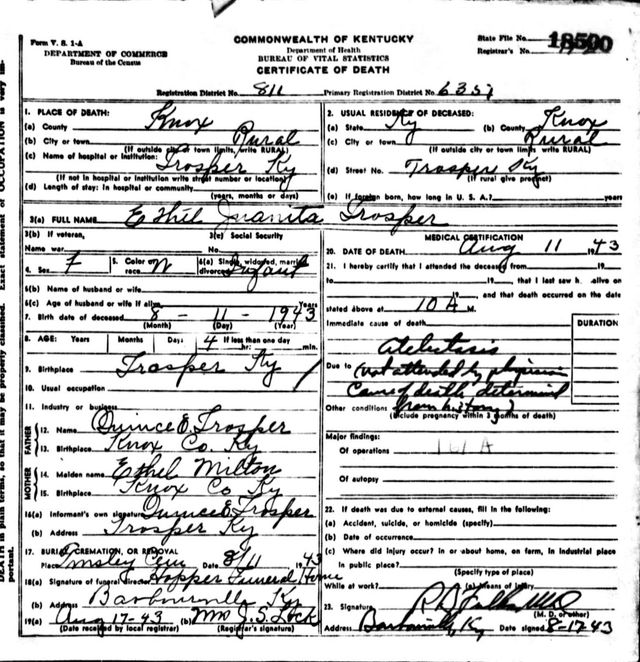 Form V. S. 1-A
DEPARTMENT OF COMMERCE
Bureau of the Census
COMMONWEALTH OF KENTUCKY
Department of Health
BUREAU OF VITAL STATISTICS
CERTIFICATE OF DEATH
State File No. 18500
Registrar's No.
Registration District No. 811 Primary Registration District No. 6351
1. PLACE OF DEATH:
(a) County Knox
(b) City or town Rural
(If outside city or town limits, write RURAL)
(c) Name of hospital or institution: Trosper Ky
(If not in hospital or institution write street number or location)
(d) Length of stay: In hospital or community
(years, months or days)
2. USUAL RESIDENCE OF DECEASED:
(a) State Ky (b) County Knox
(c) City or town Rural
(If outside city or town limits write RURAL)
(d) Street No. Trosper Ky
(If rural give precinct)
(e) If foreign born, how long in U. S. A.? years
3(a) FULL NAME Ethel Juanita Trosper
3(b) If veteran,
Name war
3(c) Social Security
No.
4. Sex F 5. Color or race W 6(a) Single, widowed, married, divorced Infant
6(b) Name of husband or wife
6(c) Age of husband or wife if alive Years
7. Birth date of deceased 8 - 11 - 1943
(Month) (Day) (Year)
8. AGE: Years Months Days If less than one day
4 hr. min.
9. Birthplace Trosper Ky
10. Usual occupation
11. Industry or business
FATHER
12. Name Quince E. Trosper
13. Birthplace Knox Co. Ky
MOTHER
14. Maiden name Ethel Milton
15. Birthplace Knox Co Ky
16(a) Informant's own signature Quince E Trosper
(b) Address Trosper Ky
17. BURIAL, CREMATION, OR REMOVAL
Place Ansley Cem Date 8/11 1943
18(a) Signature of funeral director Hopper Funeral Home
(b) Address Barbourville Ky
19(a) Aug 17-43 (b) Mrs J. S. Lock
(Date received by local registrar) (Registrar's signature)
MEDICAL CERTIFICATION
20. DATE OF DEATH Aug 11 1943
21. I hereby certify that I attended the deceased from 19
to 19 , that I last saw h alive on
19 , and that death occurred on the date
stated above at 10 A M.
Immediate cause of death
DURATION
Atelectasis
Due to (not attended by physician
Cause of death determined
Other conditions from history)
(Include pregnancy within 3 months of death)
Major findings:
161A
Of operations
Of autopsy
22. If death was due to external causes, fill in the following:
(a) Accident, suicide, or homicide (specify)
(b) Date of occurrence
(c) Where did injury occur? in or about home, on farm, in industrial place
in public place?
(Specify type of place)
While at work? (e) Means of injury
23. Signature
(M. D. or other)
Address Barbourville, Ky Date signed 8-17-43
DEATH in plain terms, so that it may be properly classified. Exact statement of OCCUPATION is very important.